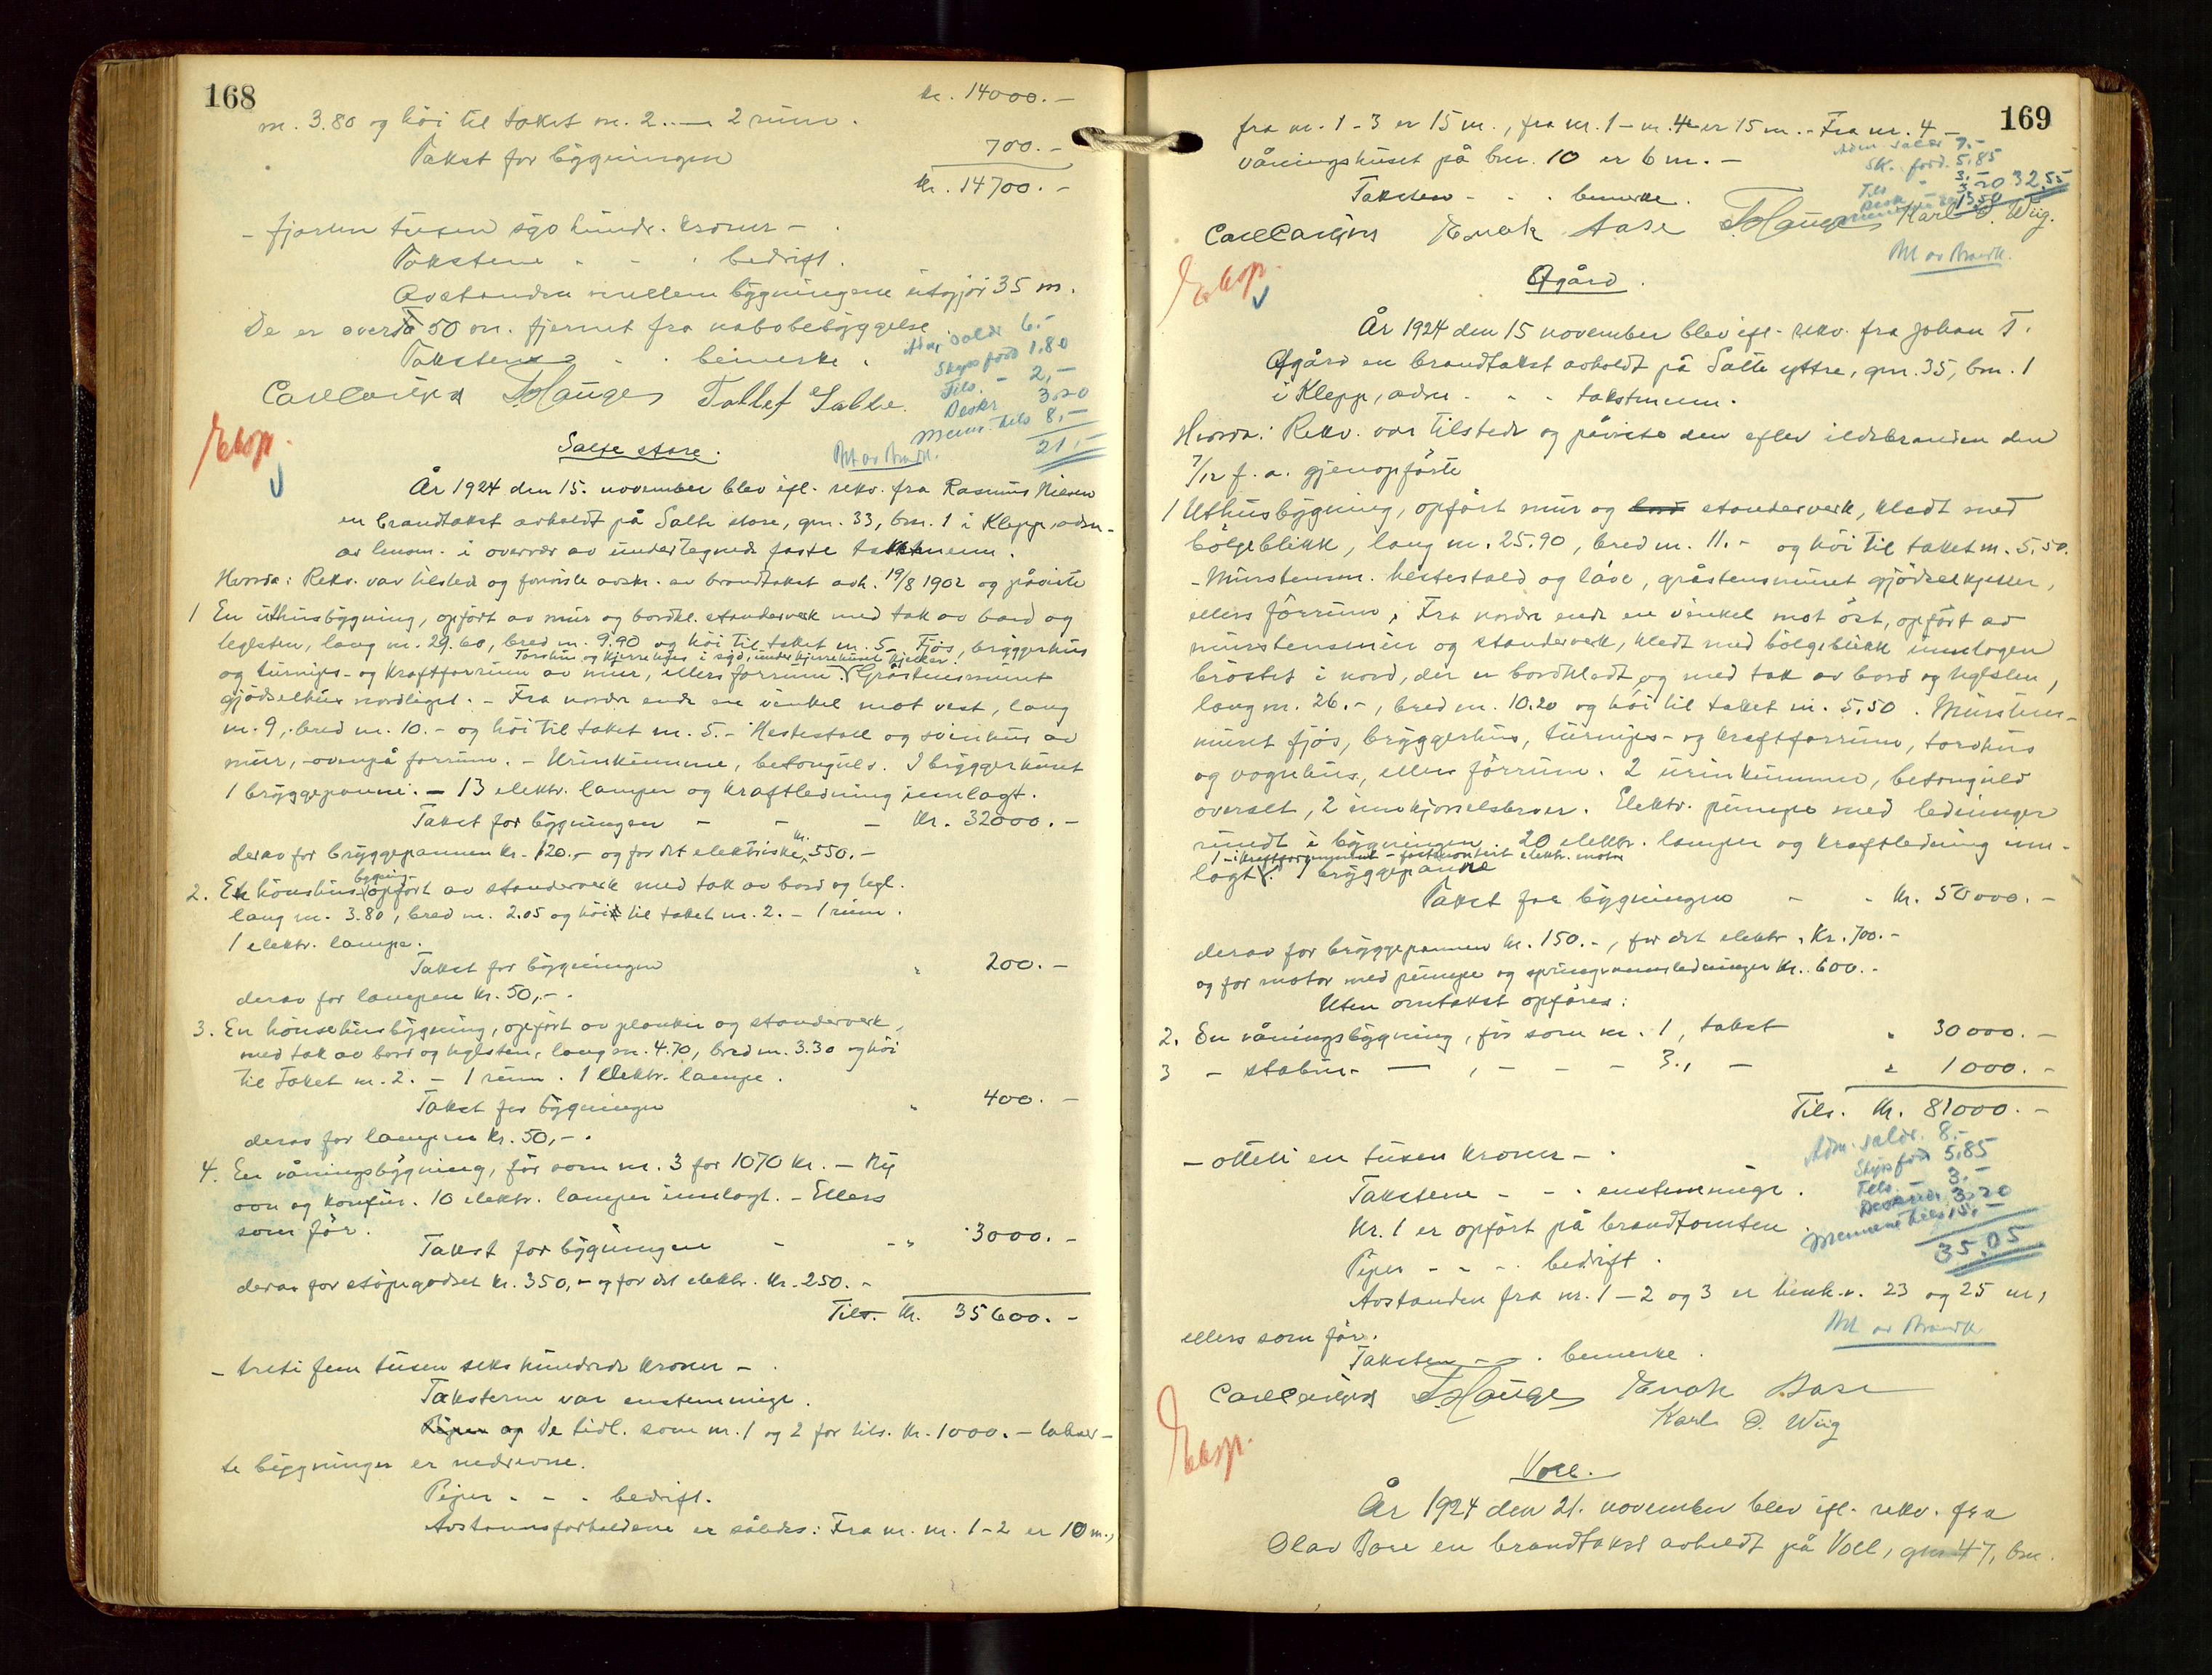 168
kr. 14000.-
m. 3.80 og höi til taket m. 2.. — 2 rum.
Takst for bygningen 700.-
Kr. 14700.-
- fjorten tusen syv hundr. kroner -
Takstene - - . bedrift.
Avstanden mellem bygningene utgjör 35 m.
De er over 50 m. fjernet fra nabobebyggelse.
Taksten - . bemerke.
Adm. salær 6.-
Skyssford 1,80
Tils. - 2,-
Deskr 3.20
Menn. tils 8,-
21,-
T. Hauge Tollef Salte.
Eksp.
Salte store.
Bet av Brandk.
År 1924 den 15. november blev efl. rekv. fra Rasmus Nilsen
en brandtakst avholdt på Salte store, gnr. 33, bnr. 1 i Klepp, adm-
av lensm. i overvær av undertegnede faste takstmenn.
Hvorda: Rekv. var tilstede og foreviste avskr. av brandtakst avh. 19/8 1902 og påviste
1 En uthusbygning, opfört av mur og bordkl. standerverk med tak av bord og
teglsten, lang m. 29.60, bred m. 9.90 og höi til taket m. 5.- Fjös, bryggerhus
Torvhus og kjerrehus i syd, under kjerrehuset kjeller.
og turnips- og kraftforrum av mur, ellers forrum. Gråstensmuret
gjödselhus nordligst. - Fra nordre ende en vinkel mot vest, lang
m. 9,. bred m. 10.- og höi til taket m. 5.- Hestestall og svinhus av
mur, ovenpå forrum. - Urinkumme, betonggulv. I bryggerhuset
1 bryggepanne. - 13 elektr. lamper og kraftledning innlagt.
Takst for bygningen - - - Kr. 32000.-
derav for bryggepannen kr. 120.- og for det elektriske kr. 550.-
2. Et hönshus bygning opfört av standerverk med tak av bord og tegl.
lang m. 3.80, bred m. 2.05 og höi til taket m. 2. - 1 rum.
1 elektr. lampe.
Takst for bygningen " 200.-
derav for lampen kr. 50,-.
3. En hönsehusbygning, opfört av planker og standerverk,
med tak av bord og teglsten, lang m. 4.70, bred m. 3.30 og höi
til taket m. 2. - 1 rum. 1 elektr. lampe.
Takst for bygningen " 400.-
derav for lampen kr. 50,-.
4. En våningsbygning, för som nr. 3 for 1070 kr. - Ny
ovn og komfur. 10 elektr. lamper innlagt. - Ellers
som för.
Takst for bygningen - - " 3000.-
derav for stöpegodset kr. 350,- og for det elektr. kr. 250.-
Tils. kr. 35600.-
- treti fem tusen seks hundrede kroner -.
Taksterne var enstemmige.
De tidl. som nr. 1 og 2 for tils. kr. 1000.- takser-
te bygninger er nedrevne.
Piper - - - bedrift.
Avstandsforholdene er således: Fra nr. nr. 1-2 er 10 m.,
169
fra nr. 1-3 er 15 m., fra nr. 1 - nr. 4 er 15 m. - Fra nr. 4 -
våningshuset på bnr. 10 er 6 m. -
Taksten - - . bemerke.
Adm. salær 7.-
Sk. ford. 5.85
Tils " 3.-
3.20
13.50
32.55
Enok Aase T. Hauge Karl O. Wiig.
Bet av Brandk.
Eksp.
Øgård.
År 1924 den 15 november blev efl. rekv. fra Johan T.
Øgård en brandtakst avholdt på Salte yttre, gnr. 35, bnr. 1
i Klepp, adm. - - - takstmenn.
Hvorda: Rekv. var tilstede og påviste den efter ildebranden den
7/12 f. a. gjenopförte
1 Uthusbygning, opfört mur og bord standerverk, kledt med
bölgeblikk, lang m. 25.90, bred m. 11.- og höi til taket m. 5.50.
- Murstensm. hestestald og låve, gråstensmuret gjödselkjeller,
ellers forrum; Fra nordre ende en vinkel mot öst, opfört av
murstensmur og standerverk, kledt med bölgeblikk unntagen
bröstet i nord, der er bordkledt, og med tak av bord og teglsten,
lang m. 26.-, bred m. 10.20 og höi til taket m. 5.50. Murstens-
muret fjös, bryggerhus, turnips- og kraftforrum, torvhus
og vognhus, ellers forrum. 2 urinkummer, betonggulv
overalt, 2 innkjörselsbroer. Elektr. pumpe med ledninger
rundt i bygningen. 20 elektr. lamper og kraftledning inn-
1 i kraftforrummet - fastmontert elektr. motor
lagt. 1 bryggepanne
Takst for bygningen - - kr. 50000.-
derav for bryggepannen kr. 150.-, for det elektr. Kr. 700.-
og for motor med pumpe og springvannsledninger kr. 600.-
Uten omtakst opföres:
2. En våningsbygning, för som nr. 1, takst " 30000.-
3 - stabur - — , - - - 3., - " 1000.-
Tils. kr. 81000.-
- otteti en tusen kroner -.
Adm. salær. 8.-
Skyssford 5.85
Tels. - 3.-
3.20
Mennene tils 15,-
35.05
Takstene - - . enstemmige.
Nr. 1 er opfört på brandtomten.
Piper - - -. bedrift.
Avstanden fra nr. 1-2 og 3 er henh.v. 23 og 25 m,
ellers som för.
Bet av Brandk
Taksten - - . bemerke.
T. Hauge Enok Aase
Karl O. Wiig
Eksp.
Voll.
År 1924 den 21. november blev efl. rekv. fra
Olav Bore en brandtakst avholdt på Voll, gnr. 47, bnr.